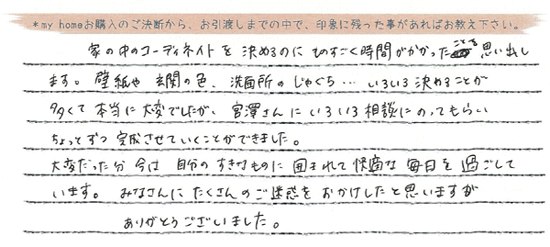 *my homeお購入のご決断から、お引渡しまでの中で、印象に残った事があればお教え下さい。
家の中のコーディネイトを決めるのにものすごく時間がかかったことを思い出し
ます。壁紙や玄関の色、洗面所のじゃぐち…いろいろ決めることが
多くて本当に大変でしたが、宮澤さんにいろいろ相談にのってもらい
ちょっとずつ完成させていくことができました。
大変だった分今は自分のすきなものに囲まれて快適な毎日を過ごして
います。みなさんにたくさんのご迷惑をおかけしたと思いますが
ありがとうございました。